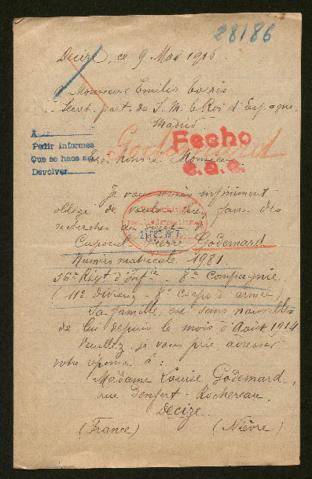 28186
Decize, ce 9 Mai 1916
Monsieur Emilio
Secrét. part. de S. M. le Roi d'Espagne
Madrid
Godemard
Fecho
A
Pedir Informes
Que se hace sa
Devolver
Très honoré Monsieur
Je vous serais infiniment
obligé de vouloir bien faire des
recherches au sujet
Caporal Pierre Godemard
Numéro matricule 1921
56e Régt d'Infie - 8e Compagnie
(
Sa famille est sans nouvelles
de lui depuis le mois d'Août 1914
Veuillez je vous prie adresser
votre réponse à :
Madame Louise Godemard
rue Denfert-Rochereau
Decize
(France) (Nièvre)